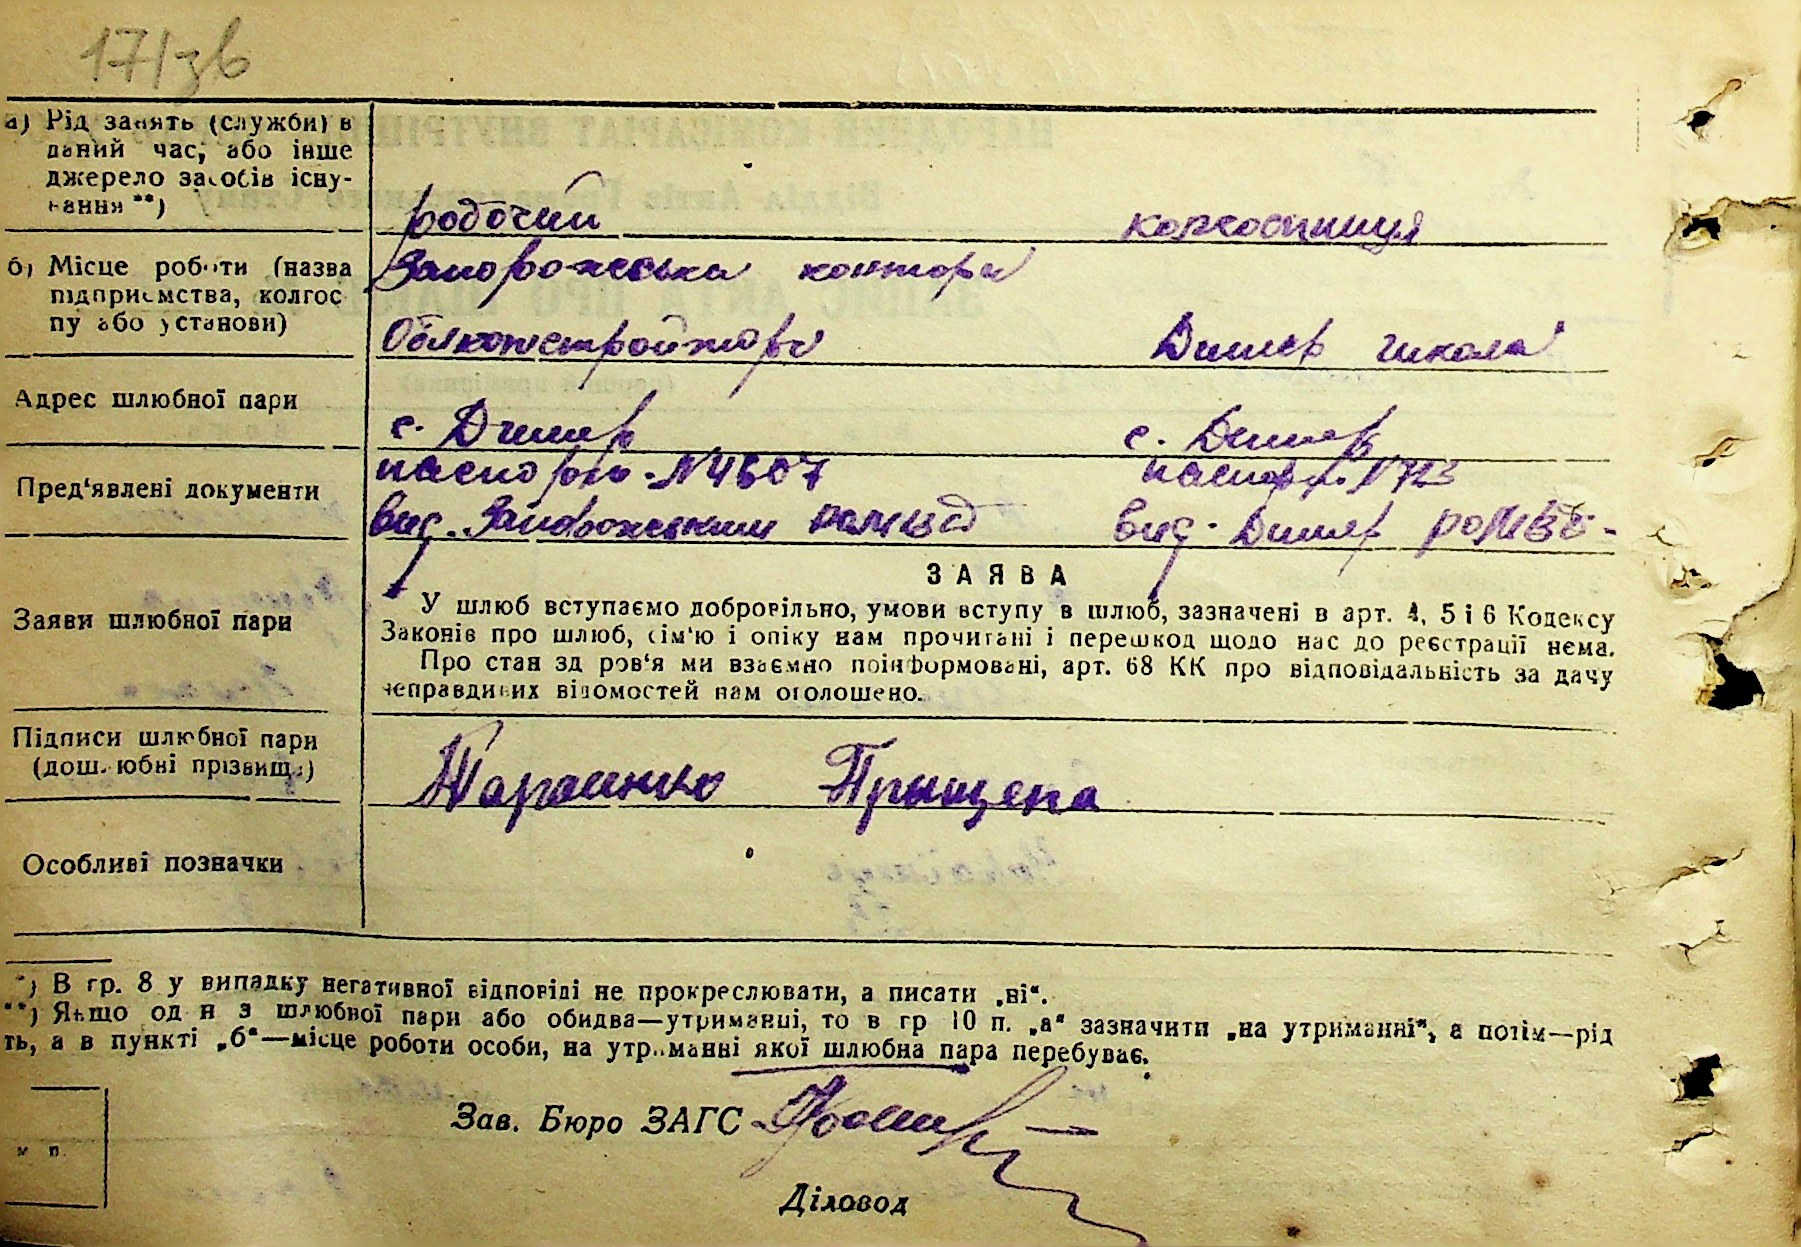 171зв
а) Рід занять (служби) в
даний час, або інше
джерело засобів існу-
вання **)
робочий колгоспниця
б) Місце роботи (назва
підприємства, колгос
пу або установи)
Запорожська контора
Дымер школа
Адрес шлюбної пари
с. Дымер с. Дымер
Пред'явлені документи
паспорт №4607 паспорт №
вид. Запорожським вид. Дымер
Заяви шлюбної пари
ЗАЯВА
У шлюб вступаємо добровільно, умови вступу в шлюб, зазначені в арт. 4, 5 і 6 Кодексу
Законів про шлюб, сім'ю і опіку нам прочитані і перешкод щодо нас до реєстрації нема.
Про стан здоров'я ми взаємно поінформовані, арт. 68 КК про відповідальність за дачу
неправдивих відомостей нам оголошено.
Підписи шлюбної пари
(дошлюбні прізвища)
Прыщепа
Особливі позначки
*) В гр. 8 у випадку негативної відповіді не прокреслювати, а писати „ні“.
**) Якщо один з шлюбної пари або обидва—утриманці, то в гр 10 п. „а“ зазначити „на утриманні“, а потім—рід
ть, а в пункті „б“—місце роботи особи, на утриманні якої шлюбна пара перебуває.
Зав. Бюро ЗАГС
м п.
Діловод